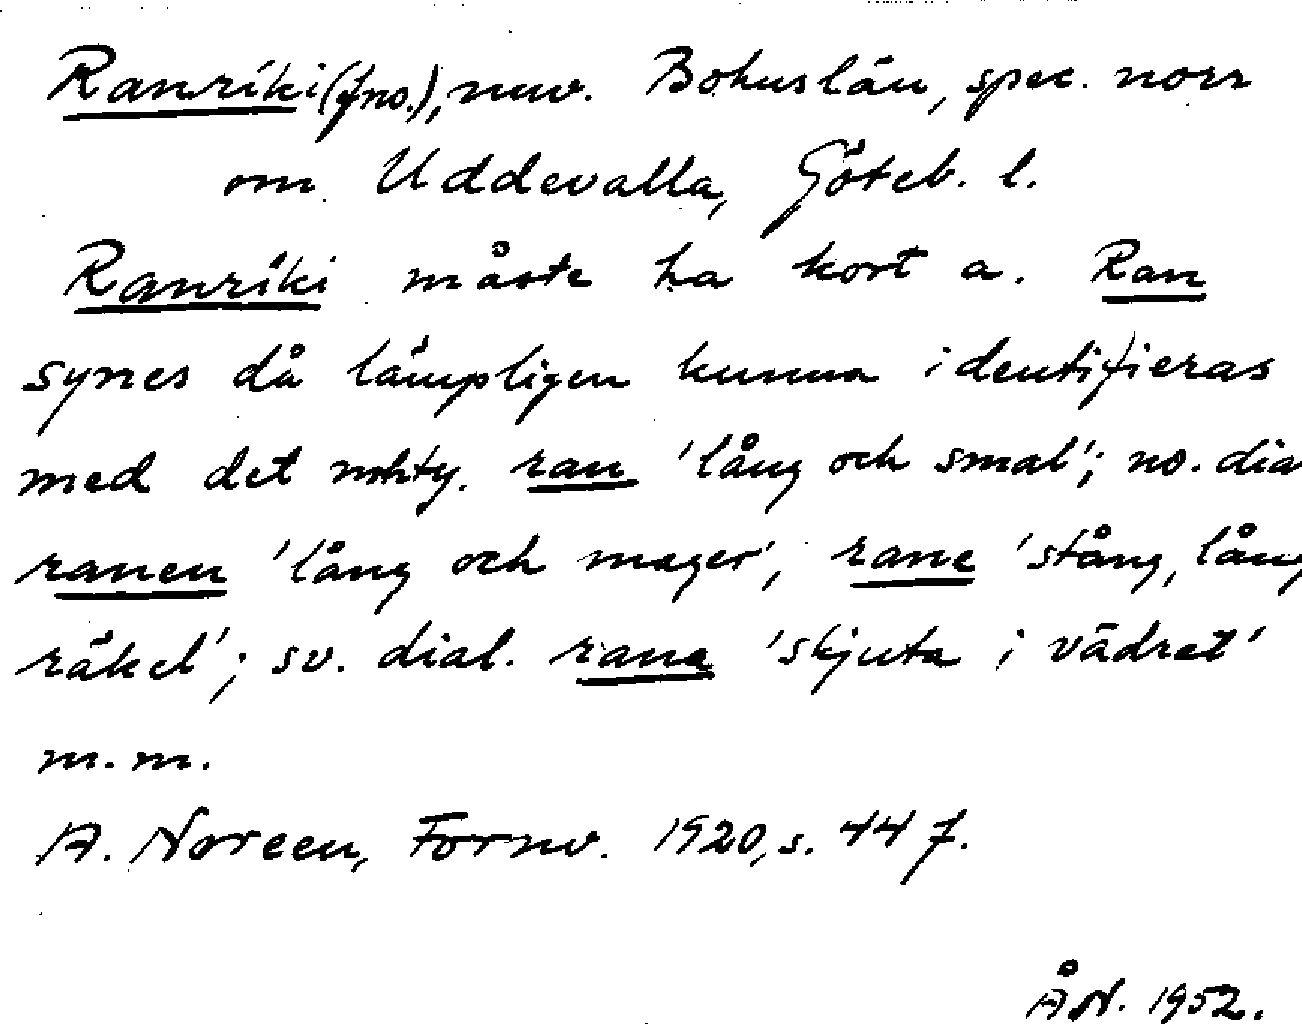 Ranríki (fno.), nuv. Bohuslän, spec. norr
om Uddevalla, Göteb. l.
Ranríki måste ha kort a. Ran
synes då lämpligen kunna identifieras
med det mhty. ran 'lång och smal'; no. dia
ranen 'lång och mager', rane 'stång, lång
räkel'; sv. dial. rana 'skjuta i vädret'
m.m.
A. Noreen, Fornv. 1920, s. 44 f.
ÅN. 1952.